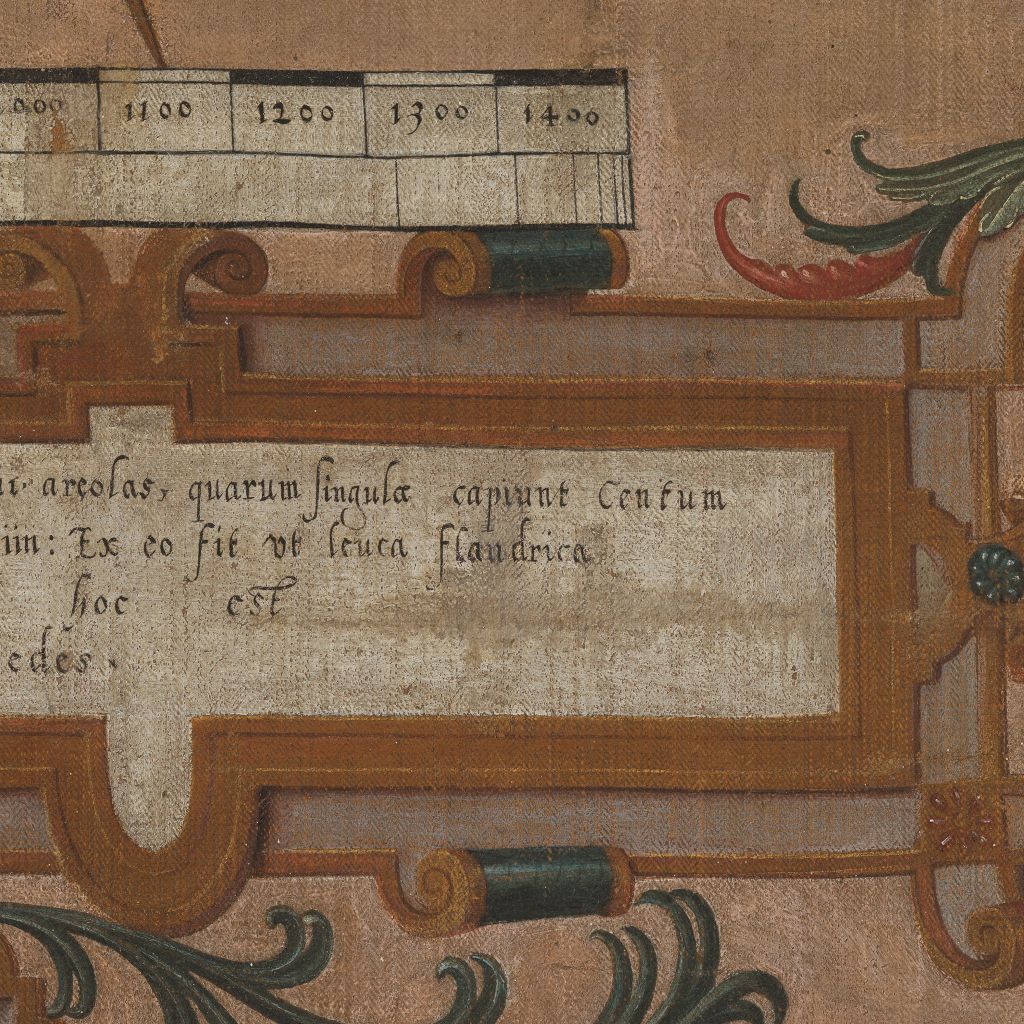 1100 1200 1300 1400
areolas, quarum singulæ capiunt Centum
Ex eo fit vt leuca flandrica
hoc est
edes.